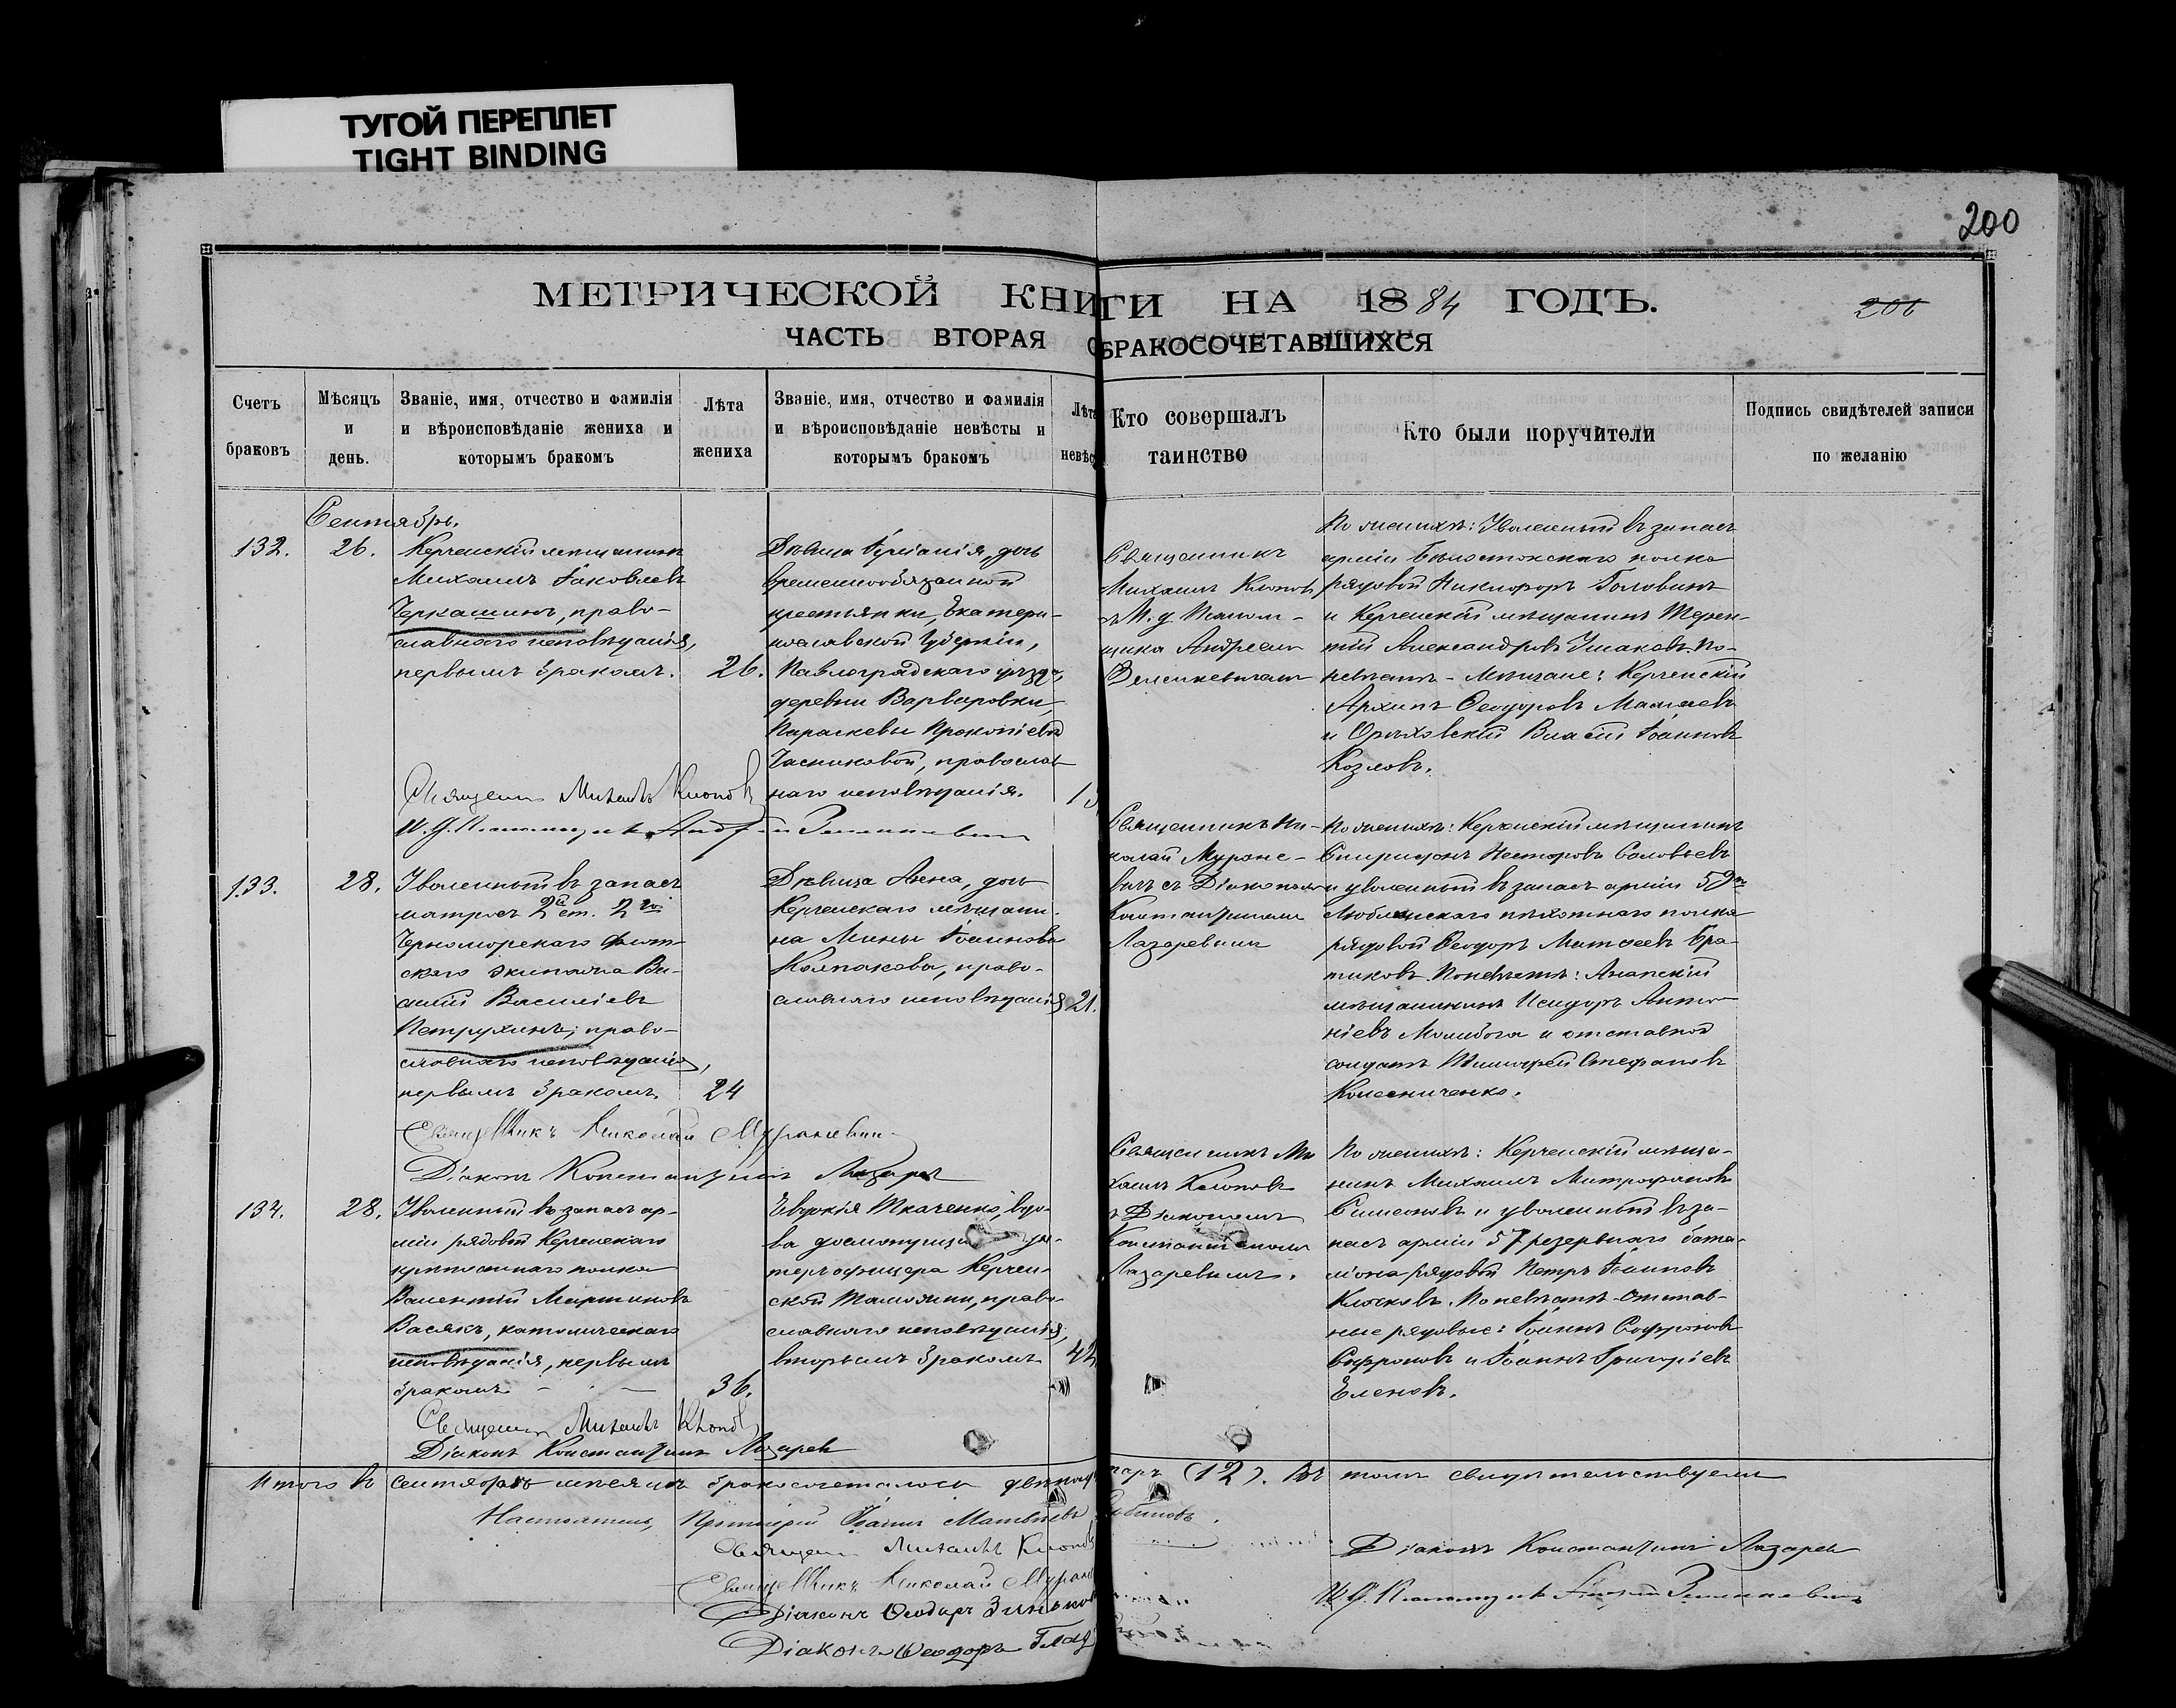 ТУГОЙ ПЕРЕПЛЕТ
TIGHT BINDING
200
МЕТРИЧЕСКОЙ КНИГИ НА 1884 ГОДЪ.
206
ЧАСТЬ ВТОРАЯ ОБРАКОСОЧЕТАВШИХСЯ
Счетъ
браковъ
Мѣсяцъ
и
день.
Званіе, имя, отчество и фамилія
и вѣроисповѣданіе жениха и
которымъ бракомъ
Лѣта
жениха
Званіе, имя, отчество и фамилія
и вѣроисповѣданіе невѣсты и
которымъ бракомъ
Лѣта
невѣс
Кто совершалъ
таинство
Кто были поручители
Подпись свидѣтелей записи
по желанію
Сентябрь.
132.
26.
Керченскій мѣщанинъ
Михаилъ Іаковлевъ
Черкашинъ, право-
славнаго исповѣданія,
первымъ бракомъ.
26.
Дѣвица дочь
временнообязанной
крестьянки, Екатери-
нославской губерніи,
Павлоградскаго уѣзда,
деревни Варваровки,
Параскевы Прокопіевой
Часниковой, православ
наго исповѣданія.
Священникъ
Михаилъ Клоповъ
съ И. д. Псалом-
щика Андреемъ
По женихѣ: Уволенный въ запасъ
арміи Бѣлостокскаго полка
рядовой Никифоръ Головинъ
и Керченскій мѣщанинъ Терен-
тій Александровъ Ушаковъ. По-
невѣстѣ - Мѣщане: Керченскій
Архипъ Ѳеодоровъ
и Орѣховскій Власій Іоанновъ
Козловъ.
Священникъ Михаилъ Клоповъ
И. д. Псаломщика Андрей
133.
28.
Уволенный въ запасъ
матросъ 2й ст. 2го
Черноморскаго флот-
скаго экипажа Ва-
силій Василіевъ
Петрухинъ, право-
славнаго исповѣданія,
первымъ бракомъ.
24
Дѣвица Анна, дочь
Керченскаго мѣщани-
на Мины Іоаннова
Колпакова, право-
славнаго исповѣданія
21.
Священникъ Ни-
колай Муране-
вичъ съ Діакономъ
Константиномъ
Лазаревымъ
По женихѣ: Керченскій мѣщанинъ
Спиридонъ Несторовъ Соловьевъ
и уволенный въ запасъ арміи 59го
Люблинскаго пѣхотнаго полка
рядовой Ѳеодоръ Матѳеевъ Бра-
тиковъ. По невѣстѣ: Анапскій
мѣщанинъ Исидоръ Анто-
ніевъ Молибога и отставной
солдатъ Тимоѳей Стефановъ
Колесниченко.
Священникъ Николай Мураневич
Діаконъ Константинъ Лазаревъ
134.
28.
Уволенный въ запасъ ар-
міи рядовой Керченскаго
крѣпостнаго полка
Валентій Мартиновъ
Васякъ, католическаго
исповѣданія, первымъ
бракомъ - - -
36.
Евдокія Ткаченко, вдо-
ва ун-
теръ офицера Керчен-
ской Таможни, право-
славнаго исповѣданія,
вторымъ бракомъ
42
Священникъ Ми
хаилъ Клоповъ
съ Діакономъ
Константиномъ
Лазаревымъ.
По женихѣ: Керченскій мѣща-
нинъ Михаилъ Митрофановъ
Симеоновъ и уволенный въ за-
пасъ арміи 57 резервнаго бата-
ліона рядовой Петръ Іоанновъ
Клочковъ. По невѣстѣ - Отстав-
ные рядовые: Іоаннъ Софроновъ
Софроновъ и Іоаннъ Григоріевъ
Еленовъ.
Священникъ Михаилъ Клоповъ
Діаконъ Константинъ Лазаревъ
Итого въ Сентябрѣ мѣсяцѣ бракосочеталось двѣнадц паръ (12). Въ томъ свидѣтельствуемъ
Настоятель, Протоіерей Іоаннъ Матвѣевъ
Священникъ Михаилъ Клоповъ
Священникъ Николай Муране
Діаконъ Ѳеодоръ Зиньков
Діаконъ Ѳеодоръ
Діаконъ Константинъ Лазаревъ
И. д. Псаломщика Андрей